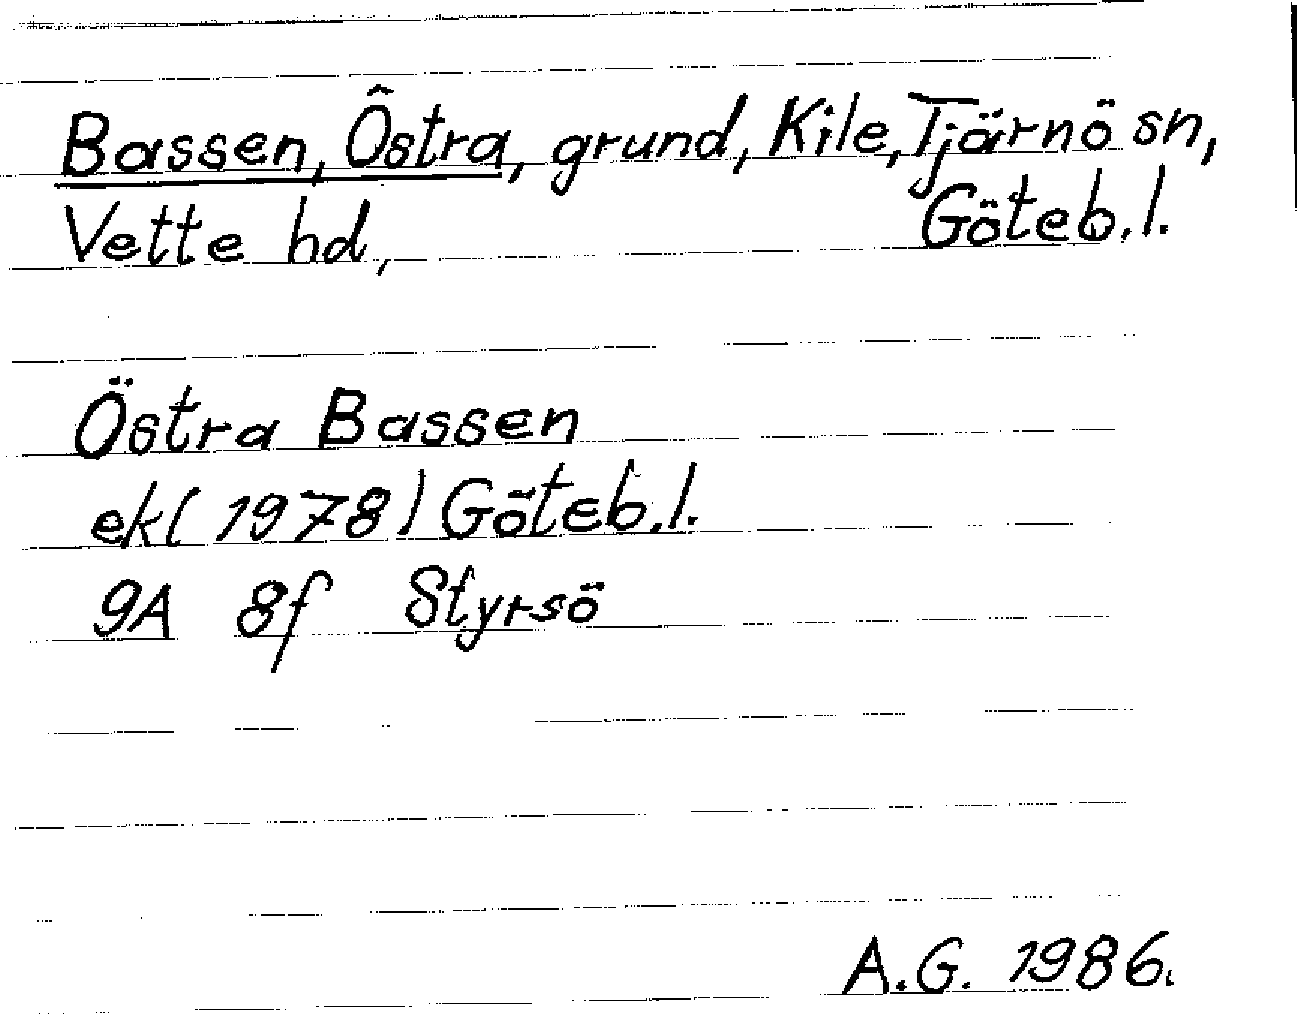 Bassen, Östra, grund, Kile, Tjärnö sn,
Vette hd, Göteb.l.
Östra Bassen
ekl(1978) Göteb.l.
9A 8f Styrsö
A.G. 1986.